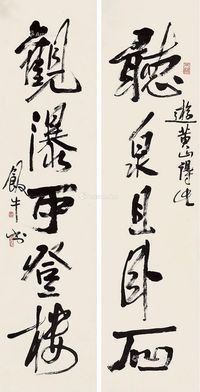 聽泉且卧石
遊黃山得
觀瀑再登樓
飯牛書